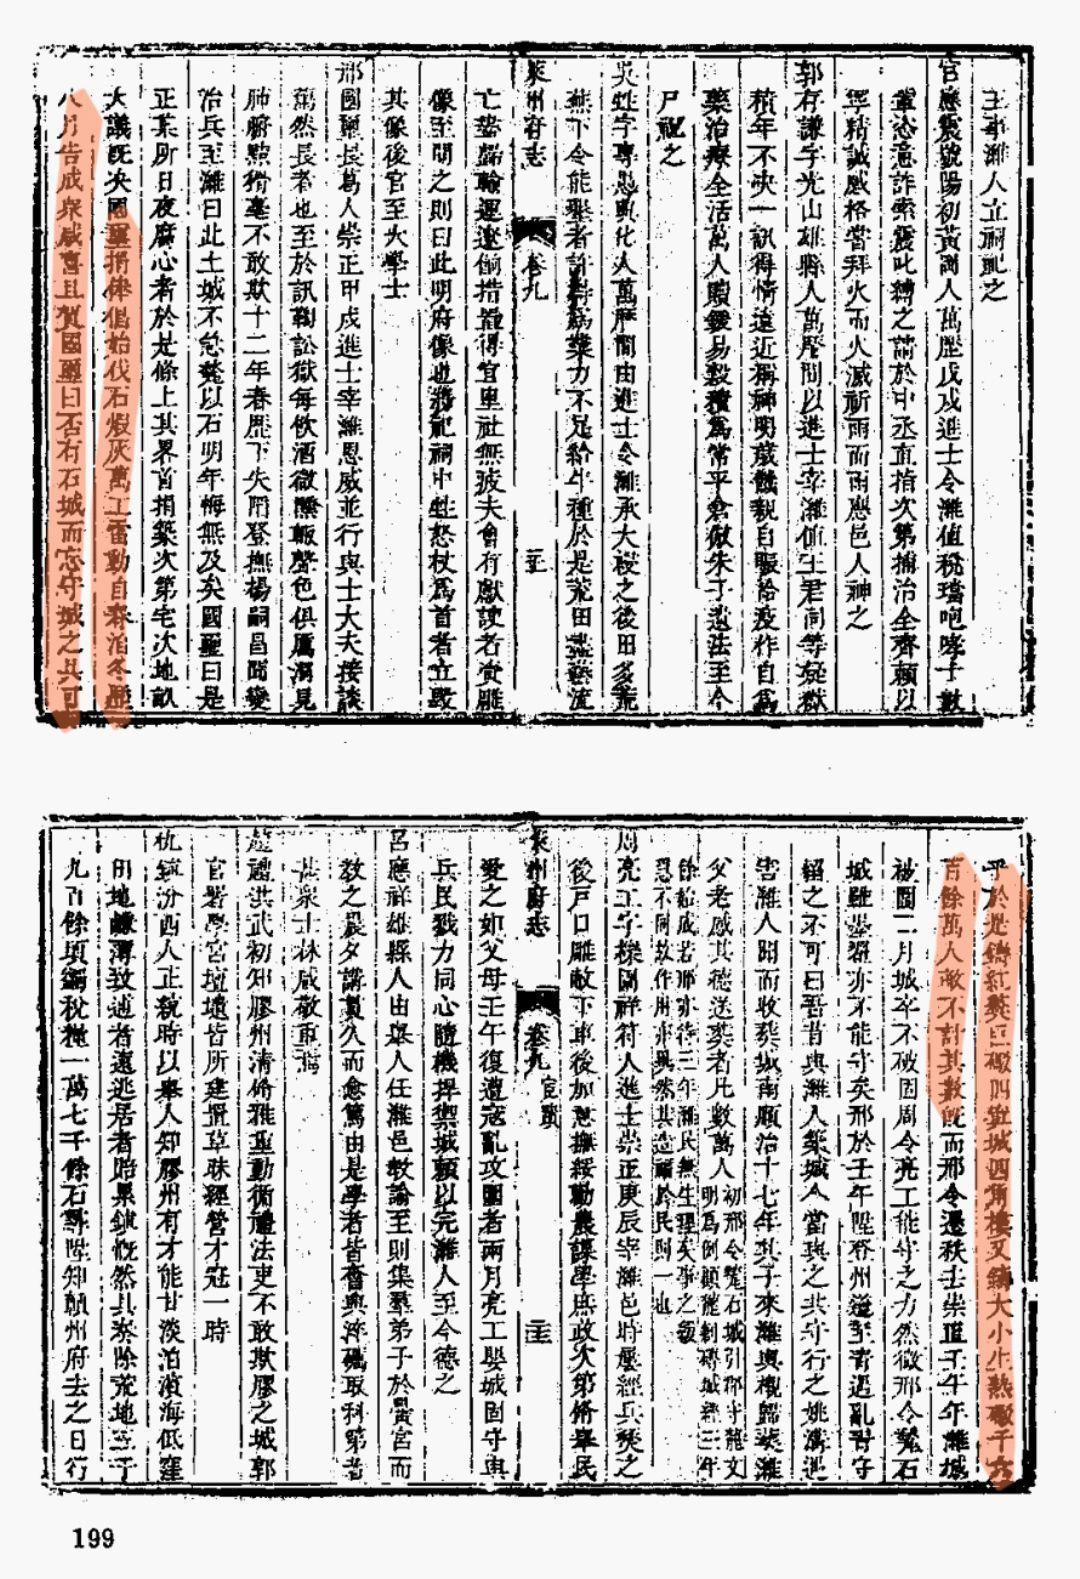 主事濰人立祠祀之
官應震號陽初黃岡人萬歷戊戌進士令濰值稅璫咆哮于數
輩恣意詐索震叱縛之請於中丞直指次第捕治全齊賴以
寧精誠感格嘗拜火而火滅祈雨而雨應邑人神之
郭存謙字光山雄縣人萬歷間以進士宰濰值王君同等疑獄
積年不決一訊得情遠近稱神明歲饑親自賑給疫作自為
藥治療全活萬人贖鍰易穀積為常平倉倣朱子遺法至今
尸祝之
吳甡字專愚興化人萬歷間由進士令濰承大祲之後田多荒
蕪下令能墾者許為業力不足給牛種於是荒田盡墾流
萊州府志
卷九
亡盡歸輸運遼餉措置得宜里社無波夫會有獻諛者肖雕
像至問之則曰此明府像也將祀祠中甡怒杖為首者立毀
其像後官至大學士
邢國璽長葛人崇正甲戌進士宰濰恩威並行與士大夫接談
藹然長者也至於訊鞫訟獄每飲酒微醺輒聲色俱厲洞見
肺腑點猾毫不敢欺十二年春歷下失陷登撫楊嗣昌閱變
治兵至濰曰此土城不急甃以石明年悔無及矣國璽曰是
正某所日夜腐心者於是條上其畧首捐築次第宅次地畝
大議既決國璽捐俸倡始伐石煆灰萬工雷動自春洎冬歷
八月告成衆咸喜且賀國璽曰否有石城而忘守城之具可
乎於是鑄紅葵巨礮四寘城四角樓又鑄大小生熟礮千六
百餘萬人敵不計其數既而邢令遷秩去崇正壬午年濰城
被圍二月城卒不破固周令亮工能守之力然微邢令甃石
城雖墨翟亦不能守矣邢於壬午陞登州道至青遇亂眾守
紹之不可曰吾昔與濰人築城今當與之共守行之姚溝遇
害濰人聞而收葬城南順治十七年其子來濰輿櫬歸葬濰
父老感其德送葬者凡數萬人初邢令甃石城引郡守龍文
明為倒顛龍創磚城經三年
餘始成若邢亦待三年濰民無生理矣事之緩
急不同故作用亦異然其造福於民則一也
周亮工字櫟園祥符人進士崇正庚辰宰濰邑時屢經兵燹之
後戶口雕敝下車後加意撫綏勸農課學庶政次第脩舉民
萊州府志
卷九 宦蹟
愛之如父母壬午復遭寇亂攻圍者兩月亮工嬰城固守與
兵民戮力同心隨機捍禦城賴以完濰人至今德之
呂應祥雄縣人由舉人任濰邑教諭至則集羣弟子於黌宮而
教之晨夕講貫久而愈篤由是學者皆奮興淬礪取科第者
甚衆士林咸敬重焉
趙禮洪武初知膠州清脩雅重動循禮法吏不敢欺膠之城郭
官署學宮壇壝皆所建置草昧經營才冠一時
杭毓汾西人正統時以舉人知膠州有才能甘淡泊濱海低窪
田地鹹薄致逋者遠逃居者賠累毓慨然具奏除荒地三千
九百餘頃蠲稅糧一萬七千餘石尋陞知順州府去之日行
199